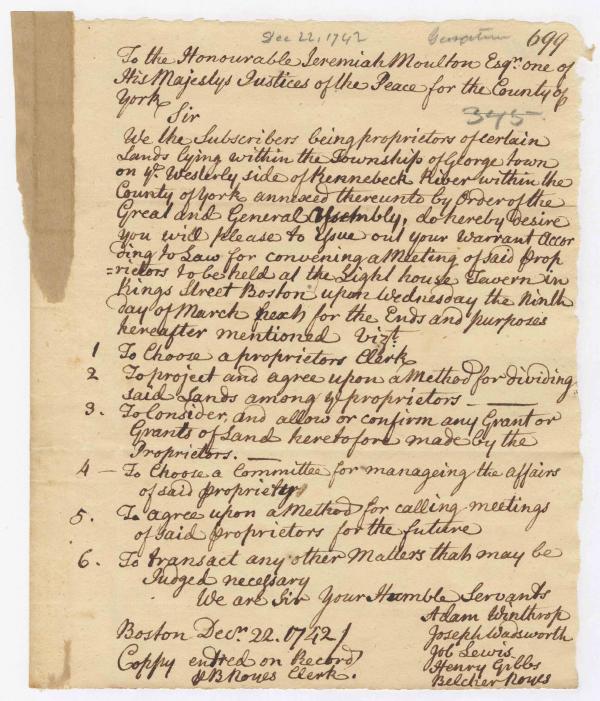 Dec 22, 1742
Georgetown 699
To the Honourable Jeremiah Moulton Esqr. one of
His Majestys Justices of the Peace for the County of
York
345
Sir
We the Subscribers being proprietors of certain
Lands lying within the Township of George town
on ye. Westerly side of Kennebeck River within the
County of York annexed thereunto by Order of the
Great and General Assembly, do hereby Desire
you will please to issue out your Warrant Accor
ding to Law for convening a Meeting of said Prop
=rietors to be held at the Light house Tavern in
Kings Street Boston upon Wednesday the Ninth
day of March next for the Ends and purposes
hereafter mentioned Vizt.
1 To Choose a proprietors Clerk
2 To project and agree upon a Method for dividing
said Lands among ye proprietors —
3. To Consider, and allow or confirm any Grant or
Grants of Land heretofore made by the
Proprietors. —
4 — To Choose a Committee for manageing the affairs
of said propriety
5. To agree upon a Method for calling meetings
of said Proprietors for the future
6. To transact any other Matters that may be
Judged necessary
We are Sir Your Humble Servants
Adam Winthrop
Boston Decr. 22. 1742 / Joseph Wadsworth
Job Lewis
Coppy entred on Record Henry Gibbs
B Noyes Clerk. Belcher Noyes